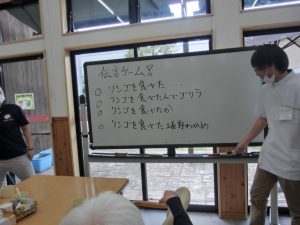 伝言ゲーム!
○ リンゴを食べた....
○ リンゴを食べたんでゴリラ
○ リンゴを食べたか
○ リンゴを食べた 磯野わかめ